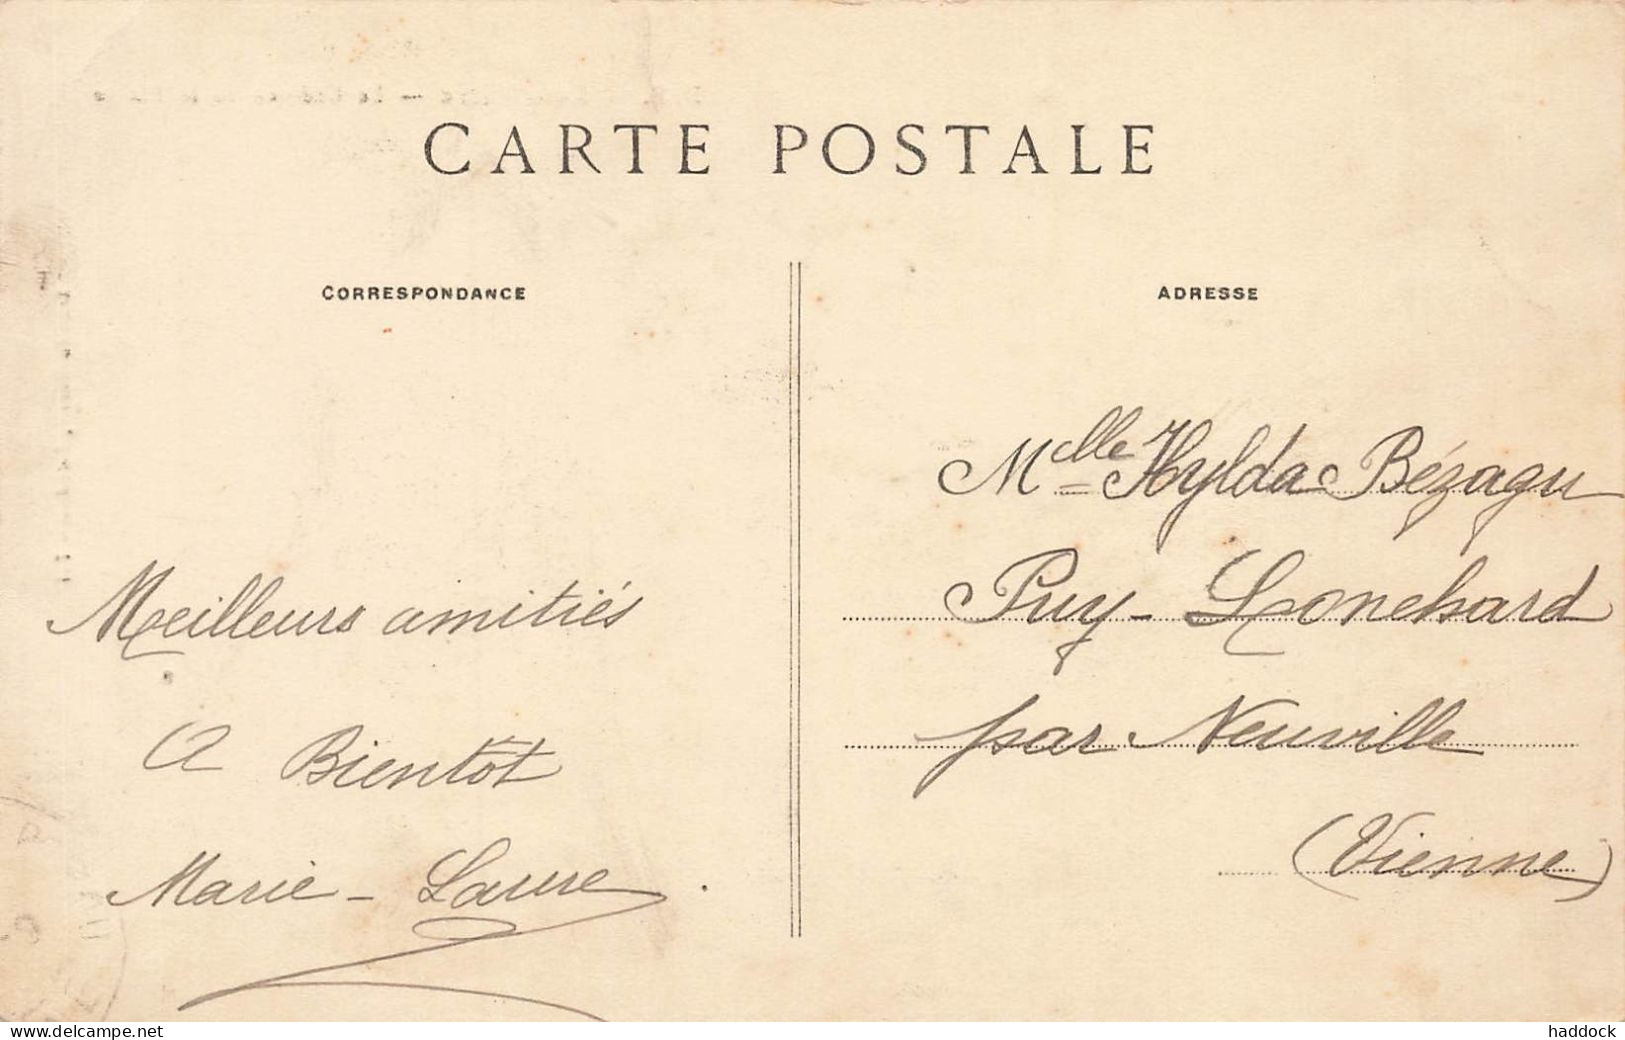 CARTE POSTALE
CORRESPONDANCE
Meilleurs amitiés
A Bientôt
Marie-Laure.
ADRESSE
Mlle Hylda Bézagu
Puy-Lonchard
par Neuville
(Vienne)
www.delcampe.net
haddock